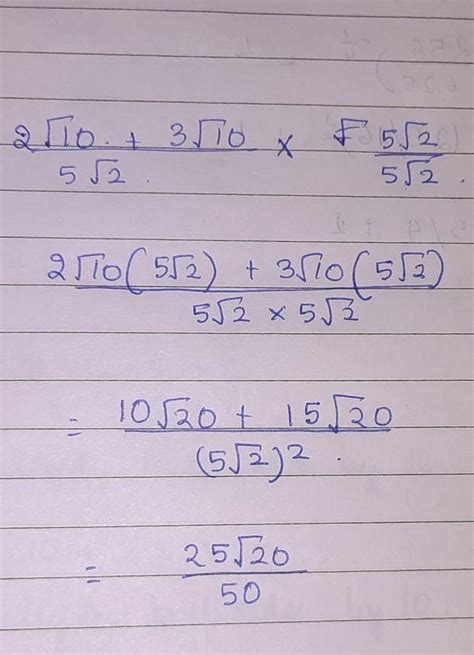 2√10 + 3√10 / 5√2 × 5√2 / 5√2
2√10(5√2) + 3√10(5√2) / 5√2 × 5√2
= 10√20 + 15√20 / (5√2)²
= 25√20 / 50